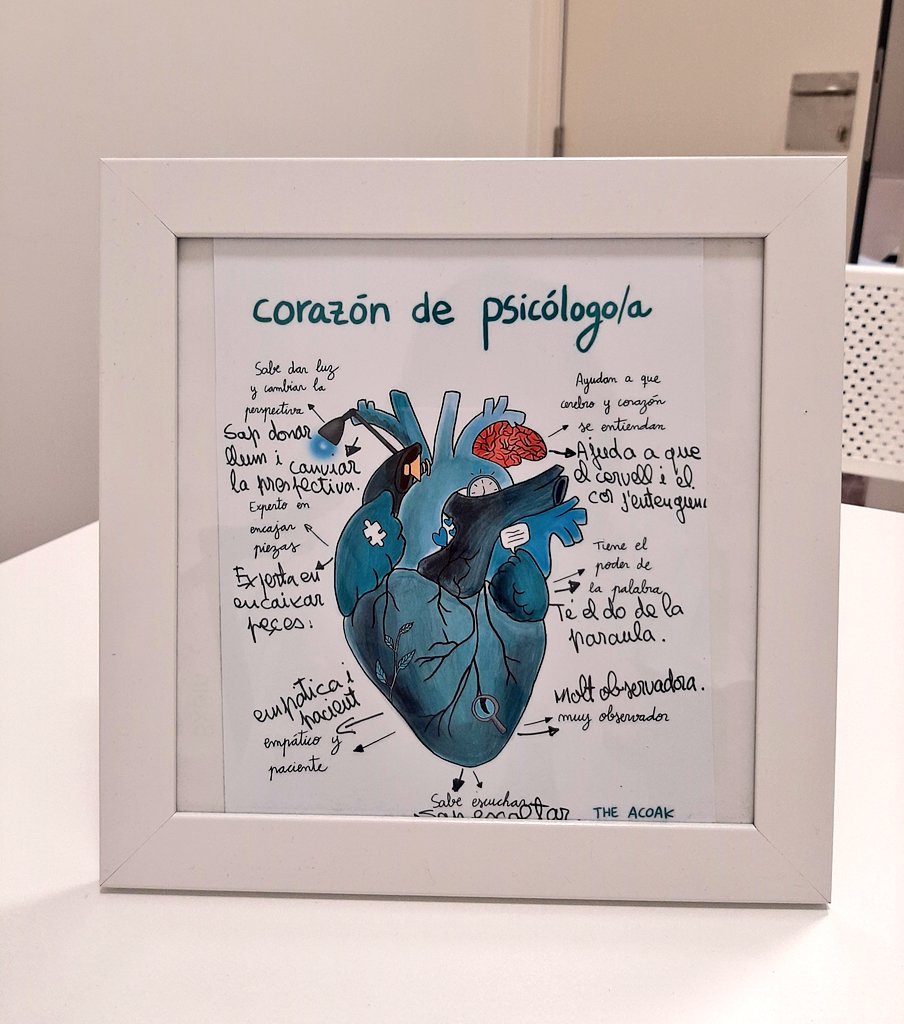 corazón de psicólogo/a
Sabe dar luz
y cambiar la
perspectiva
Sap donar
llum i canviar
la prospectiva.
Experto en
encajar
piezas
Experta en
encaixar
peces.
empàtica i
pacient
empático y
paciente
Ayudan a que
cerebro y corazón
se entiendan
Ajuda a que
el cervell i el
cor s'entenguin
Tiene el
poder de
la palabra
Té el do de la
paraula.
Molt observadora.
muy observador
Sabe escuchar
Sap escoltar.
THE ACOAK